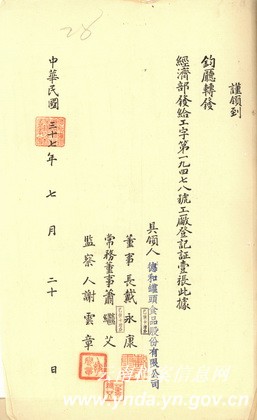 28
謹領到
鈞廳轉發
經濟部發給工字第一九四七八號工廠登記証壹張此據
具領人 德和罐頭食品股份有限公司
董事長戴永康
常務董事蕭繼父
監察人謝雲章
中華民國三十七年七月二十日
www.ynda.yn.gov.cn